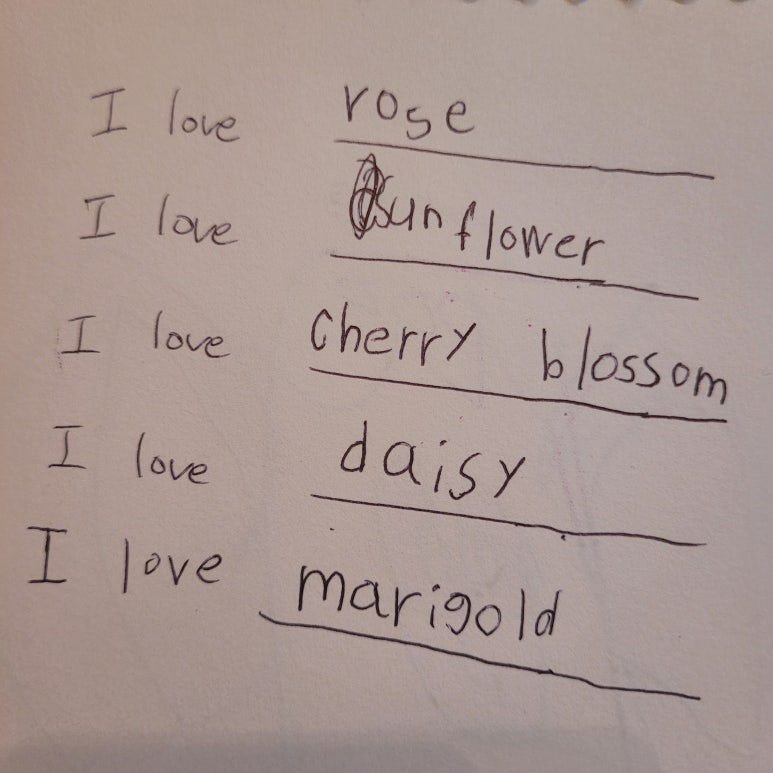 I love rose
I love sunflower
I love cherry blossom
I love daisy
I love marigold